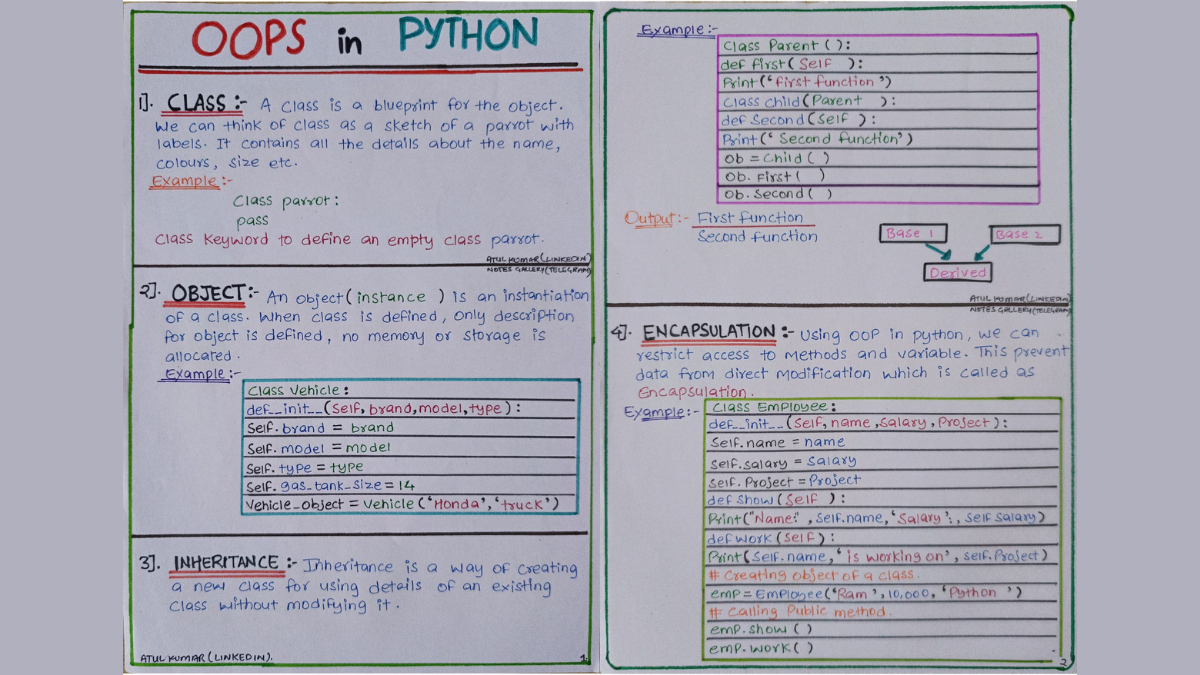 OOPS in PYTHON
1]. CLASS :- A class is a blueprint for the object.
We can think of class as a sketch of a parrot with
labels. It contains all the details about the name,
colours, size etc.
Example :-
Class parrot :
pass
Class Keyword to define an empty class parrot.
ATUL KUMAR (LINKEDIN)
NOTES GALLERY (TELEGRAM)
2]. OBJECT :- An object ( instance ) is an instantiation
of a class. When class is defined, only description
for object is defined, no memory or storage is
allocated.
Example :-
Class Vehicle :
def__init__(Self, brand, model, type) :
Self. brand = brand
Self. model = model
Self. type = type
Self. gas_tank_size = 14
Vehicle_object = Vehicle ('Honda', 'truck')
3]. INHERITANCE :- Inheritance is a way of creating
a new class for using details of an existing
class without modifying it.
ATUL KUMAR (LINKEDIN).
1.
Example :-
Class Parent ( ) :
def first ( Self ) :
Print (' first function ')
Class child (Parent ) :
def Second (Self ) :
Print (' Second function')
Ob = Child ( )
Ob. First ( )
Ob. Second ( )
Output :- First function
Second function
Base 1
Base 2
Derived
ATUL KUMAR (LINKEDIN)
NOTES GALLERY (TELEGRAM)
4]. ENCAPSULATION :- Using OOP in python, we can
restrict access to Methods and variable. This prevent
data from direct modification which is called as
Encapsulation.
Example :-
Class Employee :
def__init__(Self, name, salary, Project) :
Self. name = name
Self. salary = Salary
Self. Project = Project
def show (Self ) :
Print ("Name:' , Self.name, 'Salary': , Self Salary)
def work (Self ) :
Print (Self. name, ' is working on', self. Project)
# Creating object of a class.
emp = Employee ('Ram', 10,000, 'Python ')
# Calling Public method.
emp. show ( )
emp. work ( )
2